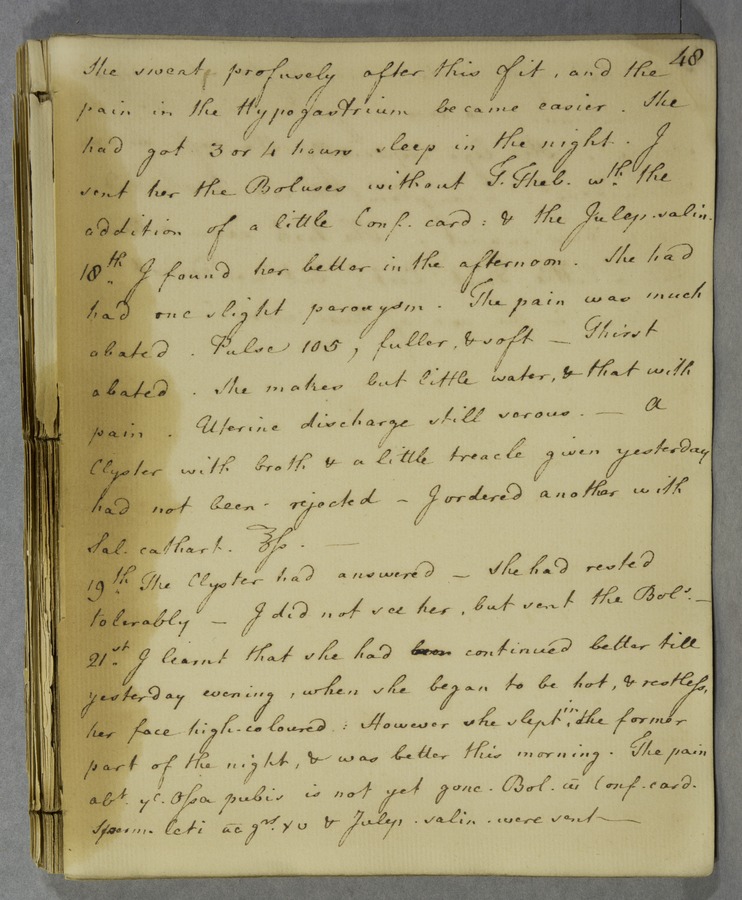 48
She sweat profusely after this fit, and the
pain in the Hypogastrium became easier. She
had got 3 or 4 hours sleep in the night. I
sent her the Boluses without T. Theb. wth. the
addition of a little Conf. card: & the Julep. salin.
18th. I found her better in the afternoon. She had
had one slight paroxysm. The pain was much
abated. Pulse 105, fuller, & soft — Thirst
abated. She makes but little water, & that with
pain. Uterine discharge still serous. — A
Clyster with broth & a little treacle given yesterday
had not been rejected — I ordered another with
Sal. cathart. ℥ſs. —
19th. The Clyster had answered — She had rested
tolerably — I did not see her, but sent the Bols. —
21st. I learnt that she had been continued better till
yesterday evening, when she began to be hot, & restless,
her face high-coloured: However she slept in the former
part of the night, & was better this morning. The pain
abt. ye. Ossa pubis is not yet gone. Bol. c̅ Conf. card.
Sperm. Ceti a̅a̅ grs. xv & Julep. salin. were sent —